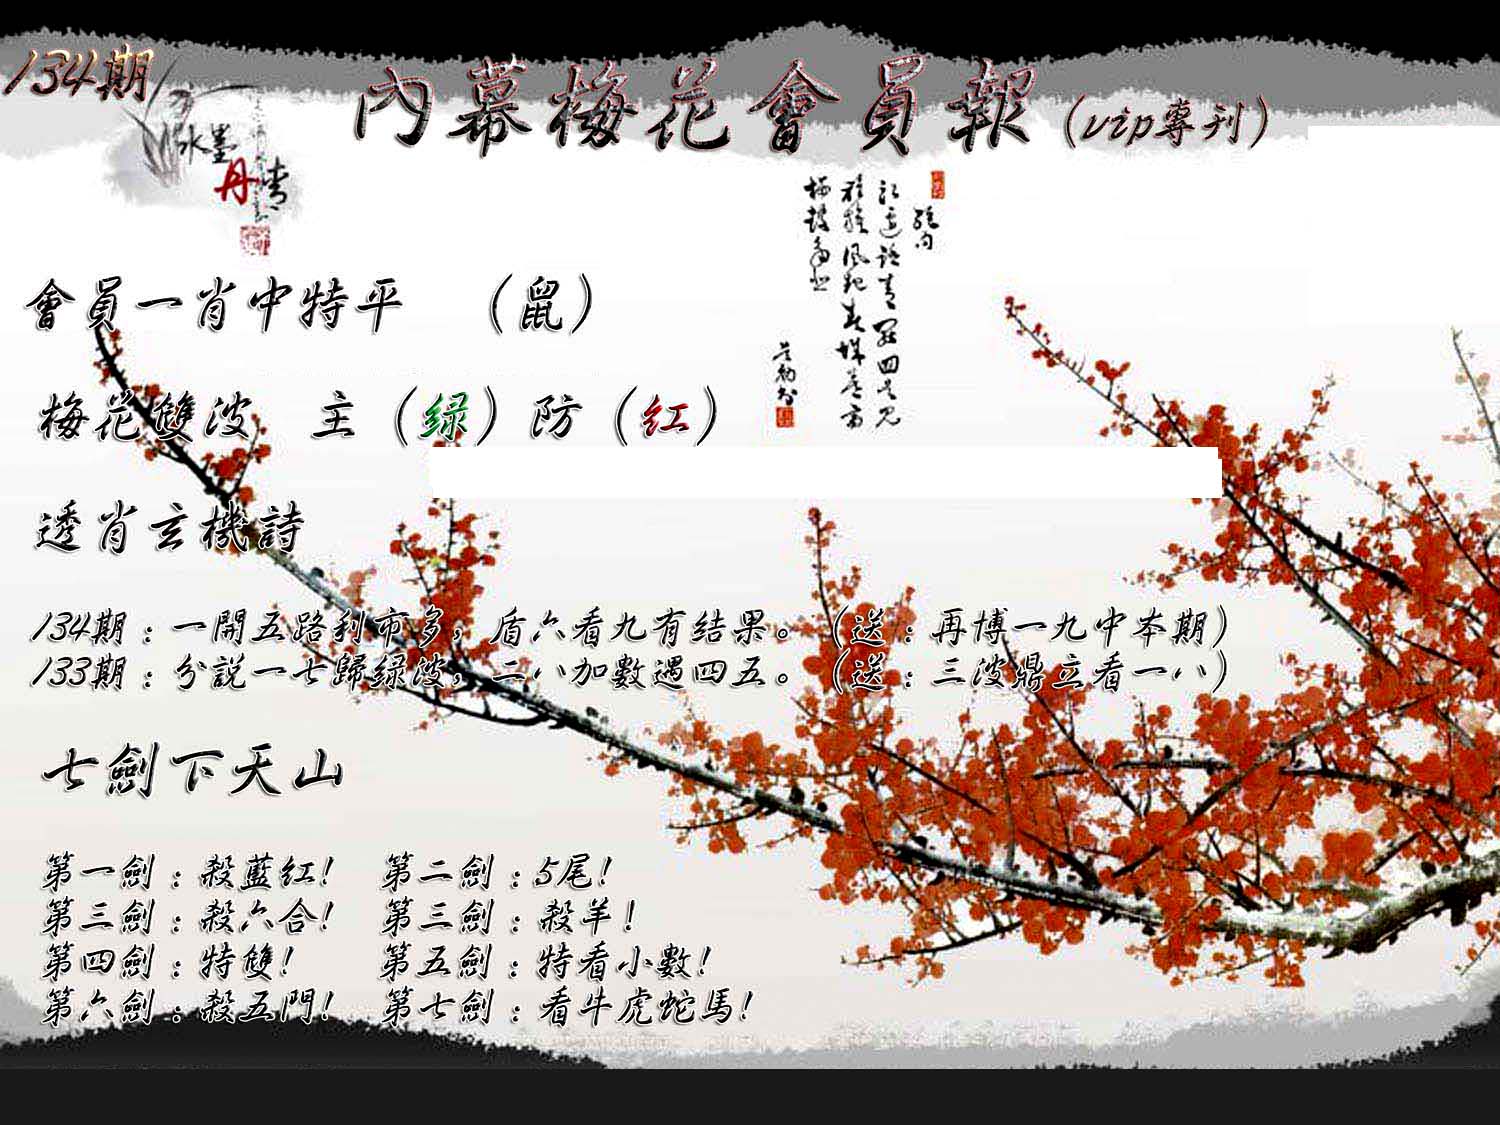 134期
內幕梅花會員報(vip專刊)
水墨
丹青
絕句
會員一肖中特平 (鼠)
梅花雙波 主(绿)防(红)
透肖玄機詩
134期:一開五路利市多,盾六看九有结果。(送:再博一九中本期)
133期:分説一七歸緑波,二八加數遇四五。(送:三波鼎立看一八)
七劍下天山
第一劍:殺藍红! 第二劍:5尾!
第三劍:殺六合! 第三劍:殺羊!
第四劍:特雙! 第五劍:特看小數!
第六劍:殺五門! 第七劍:看牛虎蛇馬!